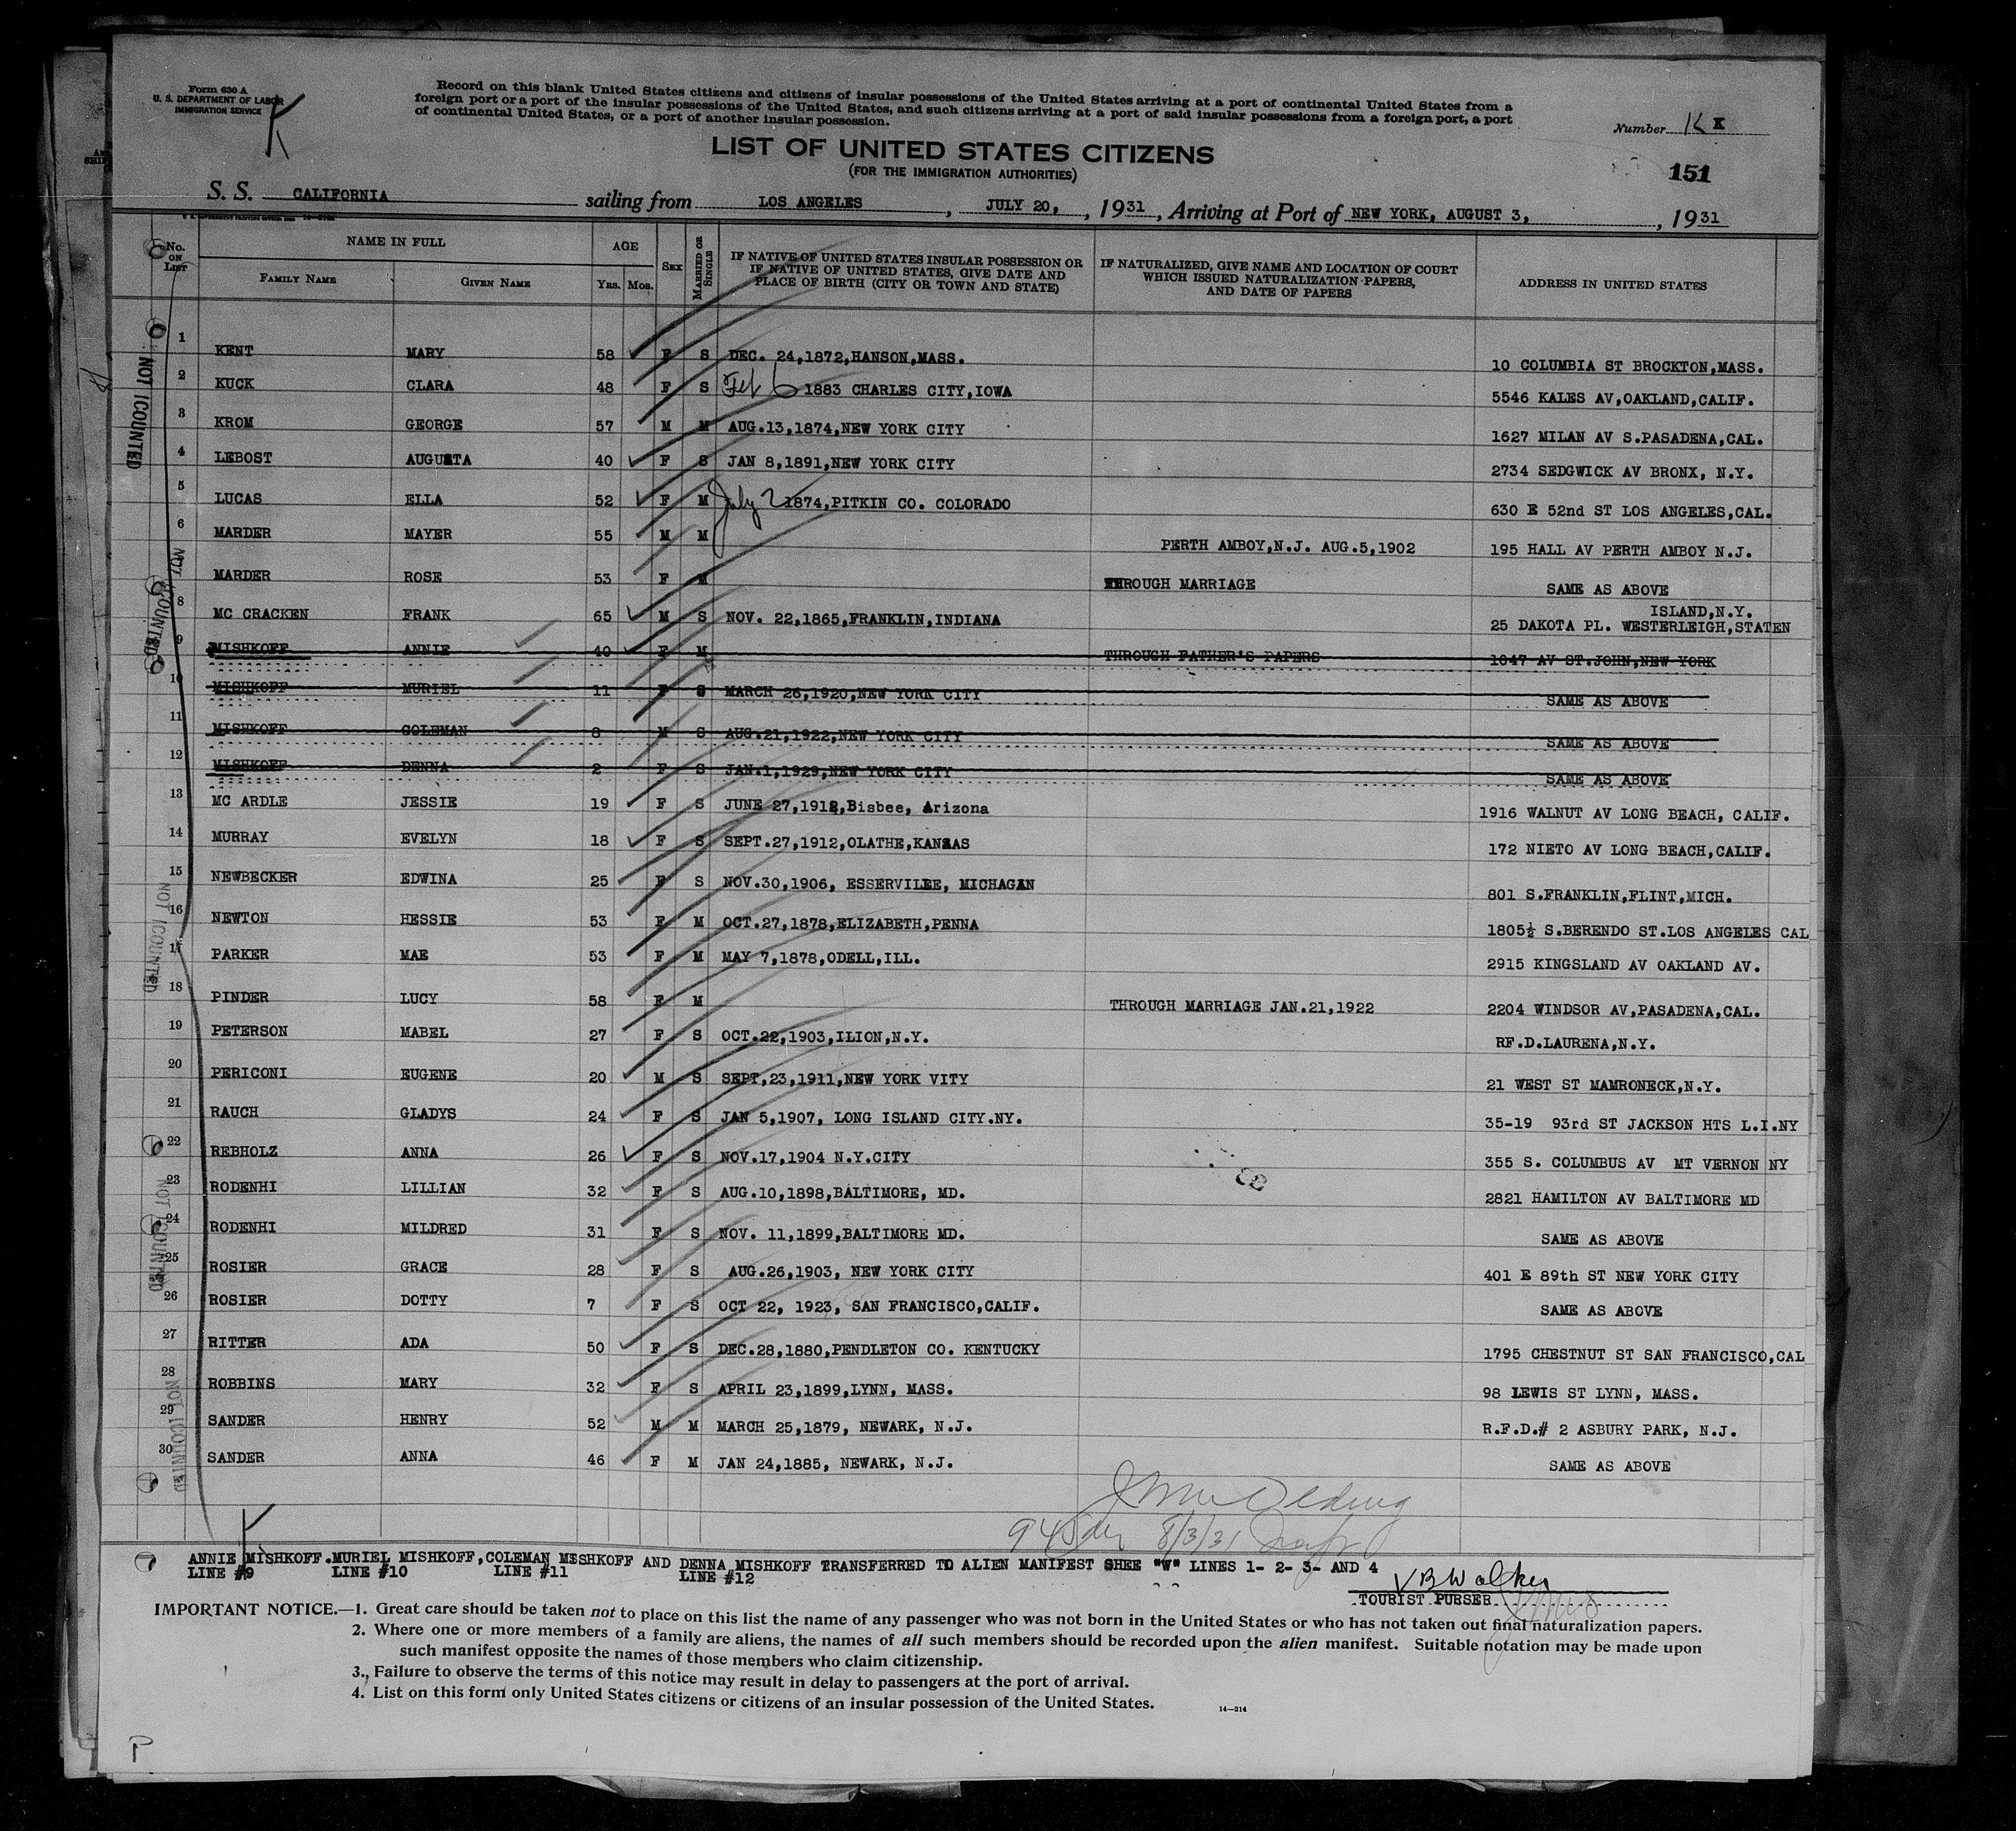 Form 630 A
U. S. DEPARTMENT OF LABOR
IMMIGRATION SERVICE
K
Record on this blank United States citizens and citizens of insular possessions of the United States arriving at a port of continental United States from a
foreign port or a port of the insular possessions of the United States, and such citizens arriving at a port of said insular possessions from a foreign port, a port
of continental United States, or a port of another insular possession.
Number K X
LIST OF UNITED STATES CITIZENS
(FOR THE IMMIGRATION AUTHORITIES)
151
S. S. CALIFORNIA sailing from LOS ANGELES, JULY 20, , 1931, Arriving at Port of NEW YORK, AUGUST 3, , 1931
No. ON LIST NAME IN FULL AGE SEX MARRIED OR SINGLE IF NATIVE OF UNITED STATES INSULAR POSSESSION OR IF NATIVE OF UNITED STATES, GIVE DATE AND PLACE OF BIRTH (CITY OR TOWN AND STATE) IF NATURALIZED, GIVE NAME AND LOCATION OF COURT WHICH ISSUED NATURALIZATION PAPERS, AND DATE OF PAPERS ADDRESS IN UNITED STATES
FAMILY NAME GIVEN NAME YRS. MOS.
1 KENT MARY 58 F S DEC. 24,1872,HANSON,MASS. 10 COLUMBIA ST BROCKTON,MASS.
2 KUCK CLARA 48 F S Feb 6 1883 CHARLES CITY,IOWA 5546 KALES AV,OAKLAND,CALIF.
3 KROM GEORGE 57 M M AUG.13,1874,NEW YORK CITY 1627 MILAN AV S.PASADENA,CAL.
4 LEBOST AUGUSTA 40 F S JAN 8,1891,NEW YORK CITY 2734 SEDGWICK AV BRONX, N.Y.
5 LUCAS ELLA 52 F M July 2 1874,PITKIN CO. COLORADO 630 E 52nd ST LOS ANGELES,CAL.
6 MARDER MAYER 55 M M PERTH AMBOY,N.J. AUG.5,1902 195 HALL AV PERTH AMBOY N.J.
MARDER ROSE 53 F M THROUGH MARRIAGE SAME AS ABOVE
8 MC CRACKEN FRANK 65 M S NOV. 22,1865,FRANKLIN,INDIANA 25 DAKOTA PL. WESTERLEIGH,STATEN ISLAND,N.Y.
9 MISHKOFF ANNIE 40 F M THROUGH FATHER'S PAPERS 1047 AV ST.JOHN,NEW YORK
10 MISHKOFF MURIEL 11 F S MARCH 26,1920,NEW YORK CITY SAME AS ABOVE
11 MISHKOFF COLEMAN 8 M S AUG.21,1922,NEW YORK CITY SAME AS ABOVE
12 MISHKOFF DENNA 2 F S JAN.1,1929,NEW YORK CITY SAME AS ABOVE
13 MC ARDLE JESSIE 19 F S JUNE 27,1912,Bisbee, Arizona 1916 WALNUT AV LONG BEACH, CALIF.
14 MURRAY EVELYN 18 F S SEPT.27,1912,OLATHE,KANSAS 172 NIETO AV LONG BEACH,CALIF.
15 NEWBECKER EDWINA 25 F S NOV.30,1906, ESSERVILEE, MICHAGAN 801 S.FRANKLIN,FLINT,MICH.
16 NEWTON HESSIE 53 F M OCT.27,1878,ELIZABETH,PENNA 1805½ S.BERENDO ST.LOS ANGELES CAL
17 PARKER MAE 53 F M MAY 7,1878,ODELL,ILL. 2915 KINGSLAND AV OAKLAND AV.
18 PINDER LUCY 58 F M THROUGH MARRIAGE JAN.21,1922 2204 WINDSOR AV,PASADENA,CAL.
19 PETERSON MABEL 27 F S OCT.22,1903,ILION,N.Y. RF.D.LAURENA,N.Y.
20 PERICONI EUGENE 20 M S SEPT,23,1911,NEW YORK VITY 21 WEST ST MAMRONECK,N.Y.
21 RAUCH GLADYS 24 F S JAN 5,1907, LONG ISLAND CITY.NY. 35-19 93rd ST JACKSON HTS L.I.NY
22 REBHOLZ ANNA 26 F S NOV.17,1904 N.Y.CITY 355 S. COLUMBUS AV MT VERNON NY
23 RODENHI LILLIAN 32 F S AUG.10,1898,BALTIMORE, MD. 2821 HAMILTON AV BALTIMORE MD
24 RODENHI MILDRED 31 F S NOV. 11,1899,BALTIMORE MD. SAME AS ABOVE
25 ROSIER GRACE 28 F S AUG.26,1903, NEW YORK CITY 401 E 89th ST NEW YORK CITY
26 ROSIER DOTTY 7 F S OCT 22, 1923, SAN FRANCISCO,CALIF. SAME AS ABOVE
27 RITTER ADA 50 F S DEC.28,1880,PENDLETON CO. KENTUCKY 1795 CHESTNUT ST SAN FRANCISCO,CAL
28 ROBBINS MARY 32 F S APRIL 23,1899,LYNN, MASS. 98 LEWIS ST LYNN, MASS.
29 SANDER HENRY 52 M M MARCH 25,1879, NEWARK, N.J. R.F.D.# 2 ASBURY PARK, N.J.
30 SANDER ANNA 46 F M JAN 24,1885, NEWARK, N.J. SAME AS ABOVE
NOT COUNTED
NOT COUNTED
NOT COUNTED
NOT COUNTED
NOT COUNTED
8/3/31
ANNIE MISHKOFF.MURIEL MISHKOFF,COLEMAN MISHKOFF AND DENNA MISHKOFF TRANSFERRED TO ALIEN MANIFEST SHEE "W" LINES 1- 2- 3- AND 4
LINE #9 LINE #10 LINE #11 LINE #12
V B Walker
TOURIST PURSER
IMPORTANT NOTICE.—1. Great care should be taken not to place on this list the name of any passenger who was not born in the United States or who has not taken out final naturalization papers.
2. Where one or more members of a family are aliens, the names of all such members should be recorded upon the alien manifest. Suitable notation may be made upon
such manifest opposite the names of those members who claim citizenship.
3. Failure to observe the terms of this notice may result in delay to passengers at the port of arrival.
4. List on this form only United States citizens or citizens of an insular possession of the United States.
14—214
P